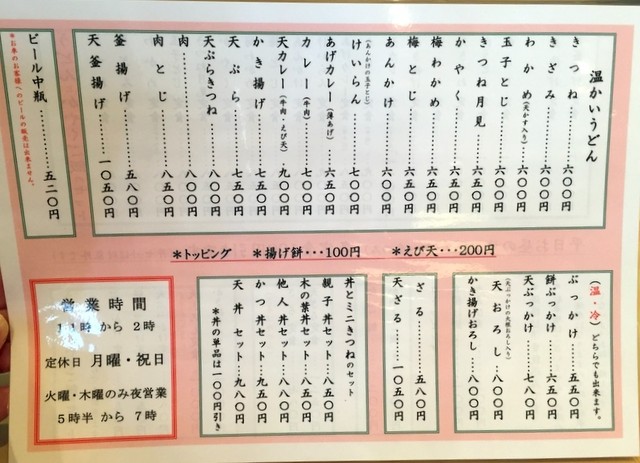 温かいうどん
きつね……六〇〇円
きざみ……六〇〇円
わかめ(天かす入り)…六〇〇円
玉子とじ……六〇〇円
きつね月見……六五〇円
かやく……六五〇円
梅わかめ……六五〇円
梅とじ……六五〇円
あんかけ……六〇〇円
けいらん……七〇〇円
(あんかけの玉子とじ)
あげカレー(薄あげ)…六五〇円
カレー(牛肉)……七〇〇円
天カレー(牛肉・えび天)…九〇〇円
かき揚げ……七五〇円
天ぷら……七五〇円
天ぷらきつね……八五〇円
肉……八〇〇円
肉とじ……八五〇円
釜揚げ……五八〇円
天釜揚げ……一〇五〇円
ビール中瓶……五二〇円
*お車のお客様へのビールの販売は出来ません。
*トッピング *揚げ餅・・・100円 *えび天・・・200円
(温・冷)どちらでも出来ます。
ぶっかけ……五五〇円
餅ぶっかけ……六五〇円
天ぶっかけ……七八〇円
(天ぶっかけの大根おろし入り)
天おろし……八〇〇円
かき揚げおろし……八〇〇円
ざる……五八〇円
天ざる……一〇五〇円
丼とミニきつねのセット
親子丼セット…八五〇円
木の葉丼セット…八五〇円
他人丼セット…八八〇円
かつ丼セット…九五〇円
天丼セット…九八〇円
*丼の単品は一〇〇円引き
営業時間
11時から2時
定休日 月曜・祝日
火曜・木曜のみ夜営業
5時半から7時